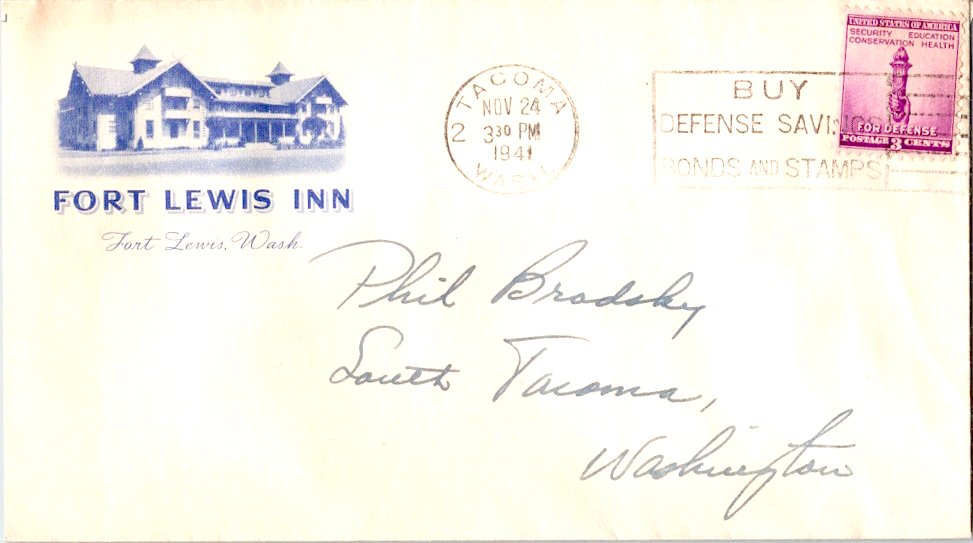 FORT LEWIS INN
Fort Lewis, Wash.
TACOMA
NOV 24
2 3 30 PM
1941
WASH.
BUY
DEFENSE SAVINGS
BONDS AND STAMPS
UNITED STATES OF AMERICA
SECURITY EDUCATION
CONSERVATION HEALTH
FOR DEFENSE
POSTAGE 3 CENTS
Phil Bradsky
South Tacoma,
Washington